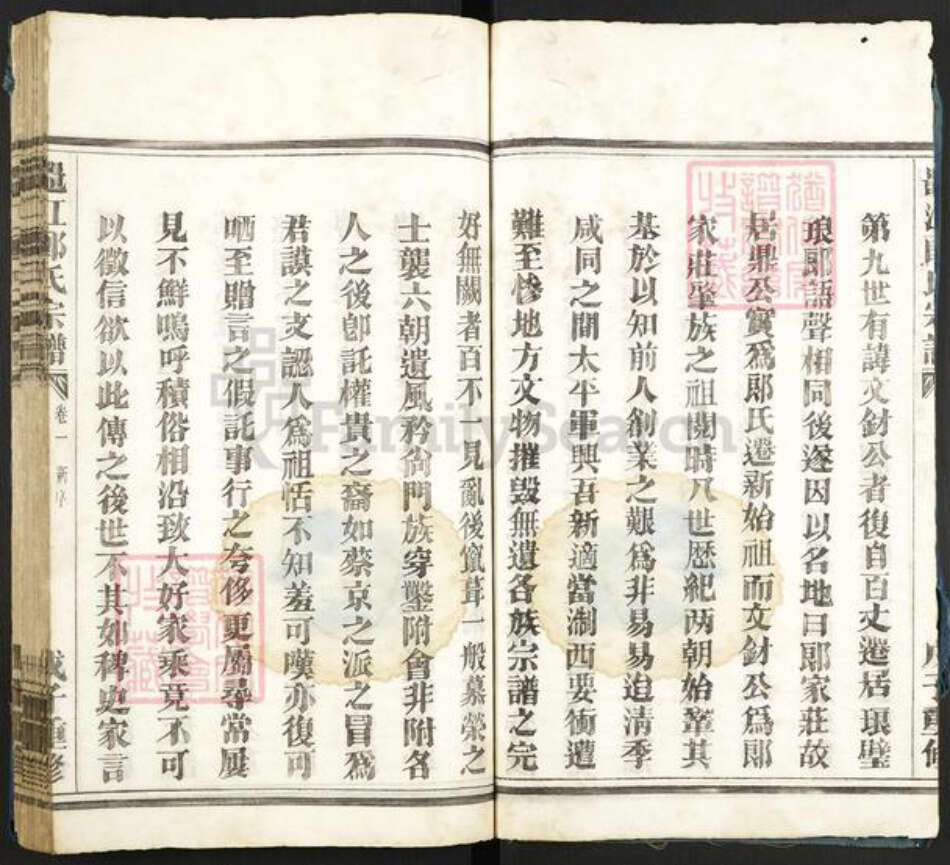 第九世有諱文財公者復自百丈遷居琅壁
琅郞語聲相同後遂因以名地曰郞家莊故
居鼎公實爲郞氏遷新始祖而文財公爲郞
家莊肇族之祖閱時八世歷紀兩朝始奠其
基於以知前人創業之艱爲非易易迨清季
咸同之間太平軍興吾新適當浙西要衝遭
難至慘地方文物摧毀無遺各族宗譜之完
好無闕者百不一見亂後竄葺一般慕榮之
士襲六朝遺風矜尙門族穿鑿附會非附名
人之後卽託權貴之裔如蔡京之派之冒爲
君謨之支認人爲祖恬不知羞可嘆亦復可
哂至贈言之假託事行之夸侈更屬尋常屢
見不鮮嗚呼積俗相沿致大好家乘竟不可
以徵信欲以此傳之後世不其如稗史家言
江郞氏宗譜
卷一 新序
戊子重修
FamilySearch